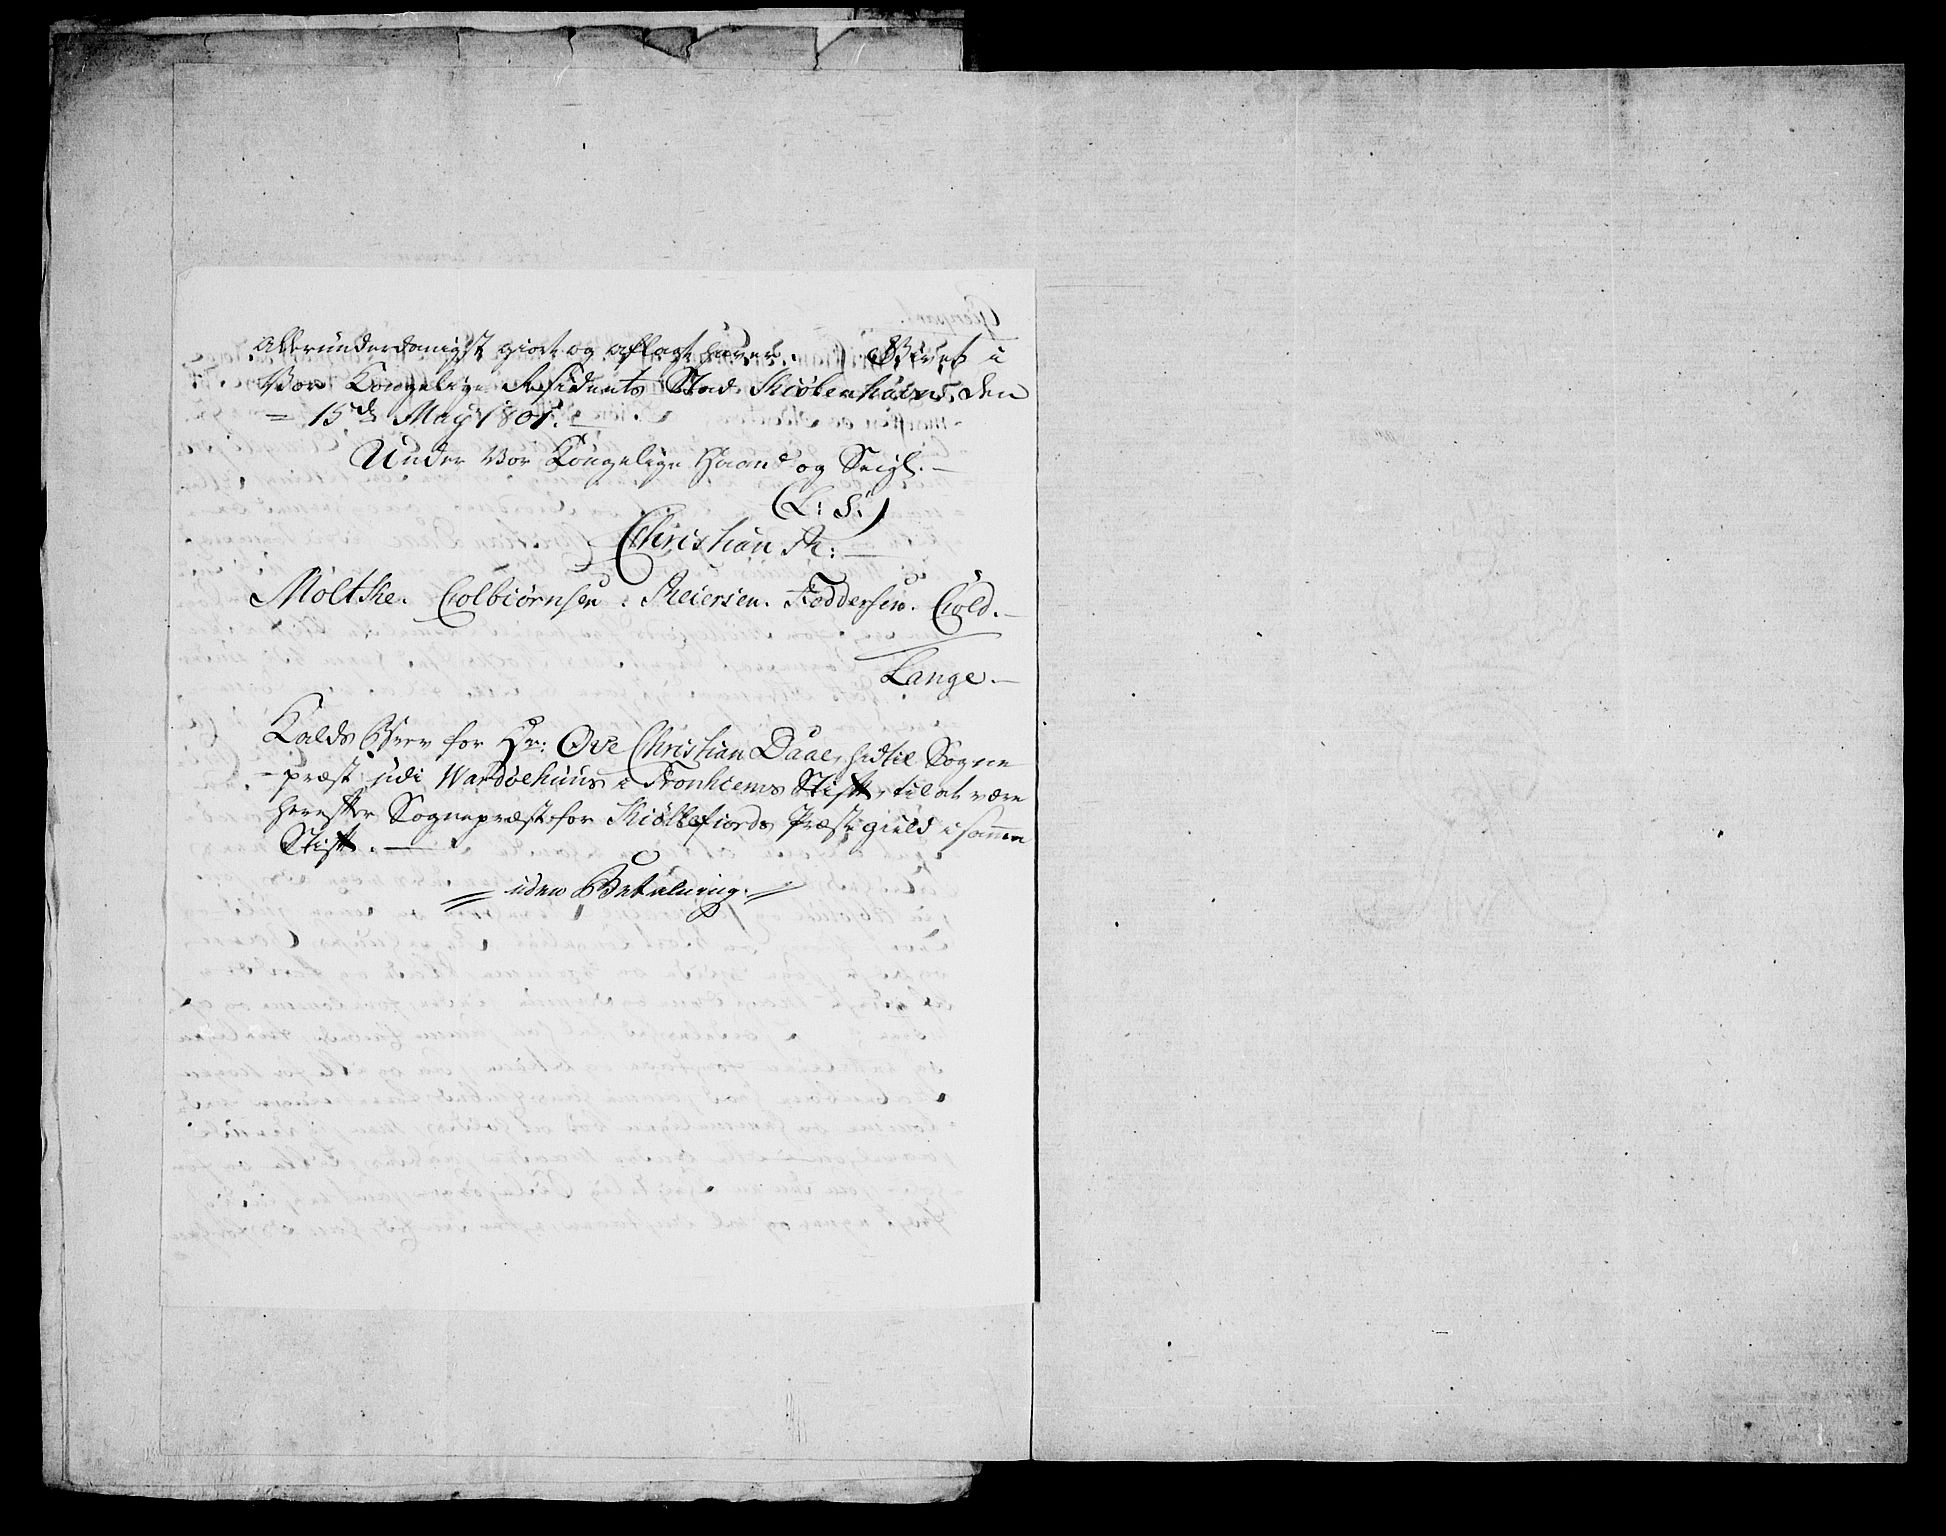 Allerunderdanigst giort og aflagt haver. Givet i
Vor Kongelige Residents Stad Kiøbenhavn, den
- 15de May 1801. -
Under Vor Kongelige Haand og Seigl. -
(L: S:)
Christian R: -
Moltke. Colbiørnsen. Reiersen. Feddersen. Cold. -
Lange. -
Kalds Brev for Hr: Ove Christian Daae, hidtil Sogne
- præst udi Wardøehuus i Tronhiems Stift, til at være
herefter Sognepræst for Kiøllefiords Præstegield i samme
Stift. -
= uden Betalning. =